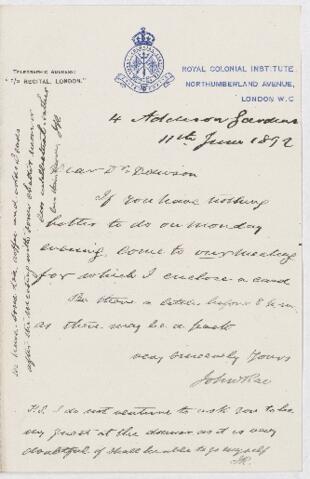 TELEGRAPHIC ADDRESS:
"RECITAL, LONDON."
ROYAL COLONIAL INSTITUTE
NORTHUMBERLAND AVENUE,
LONDON W.C
4 Addison Gardens
11th June 1892
Dear Dr Dawson
If you have nothing
better to do on Monday
evening, come to our meeting
for which I enclose a card
Be there a little before 8 p.m.
as there may be a push
very sincerely yours
John Rae
P.S. I do not venture to ask you to be
my guest at the dinner as it is very
doubtful if I shall be able to go myself
JR.
We have some tea coffee and other
after the meeting with some chatter more or
less intellectual, rather